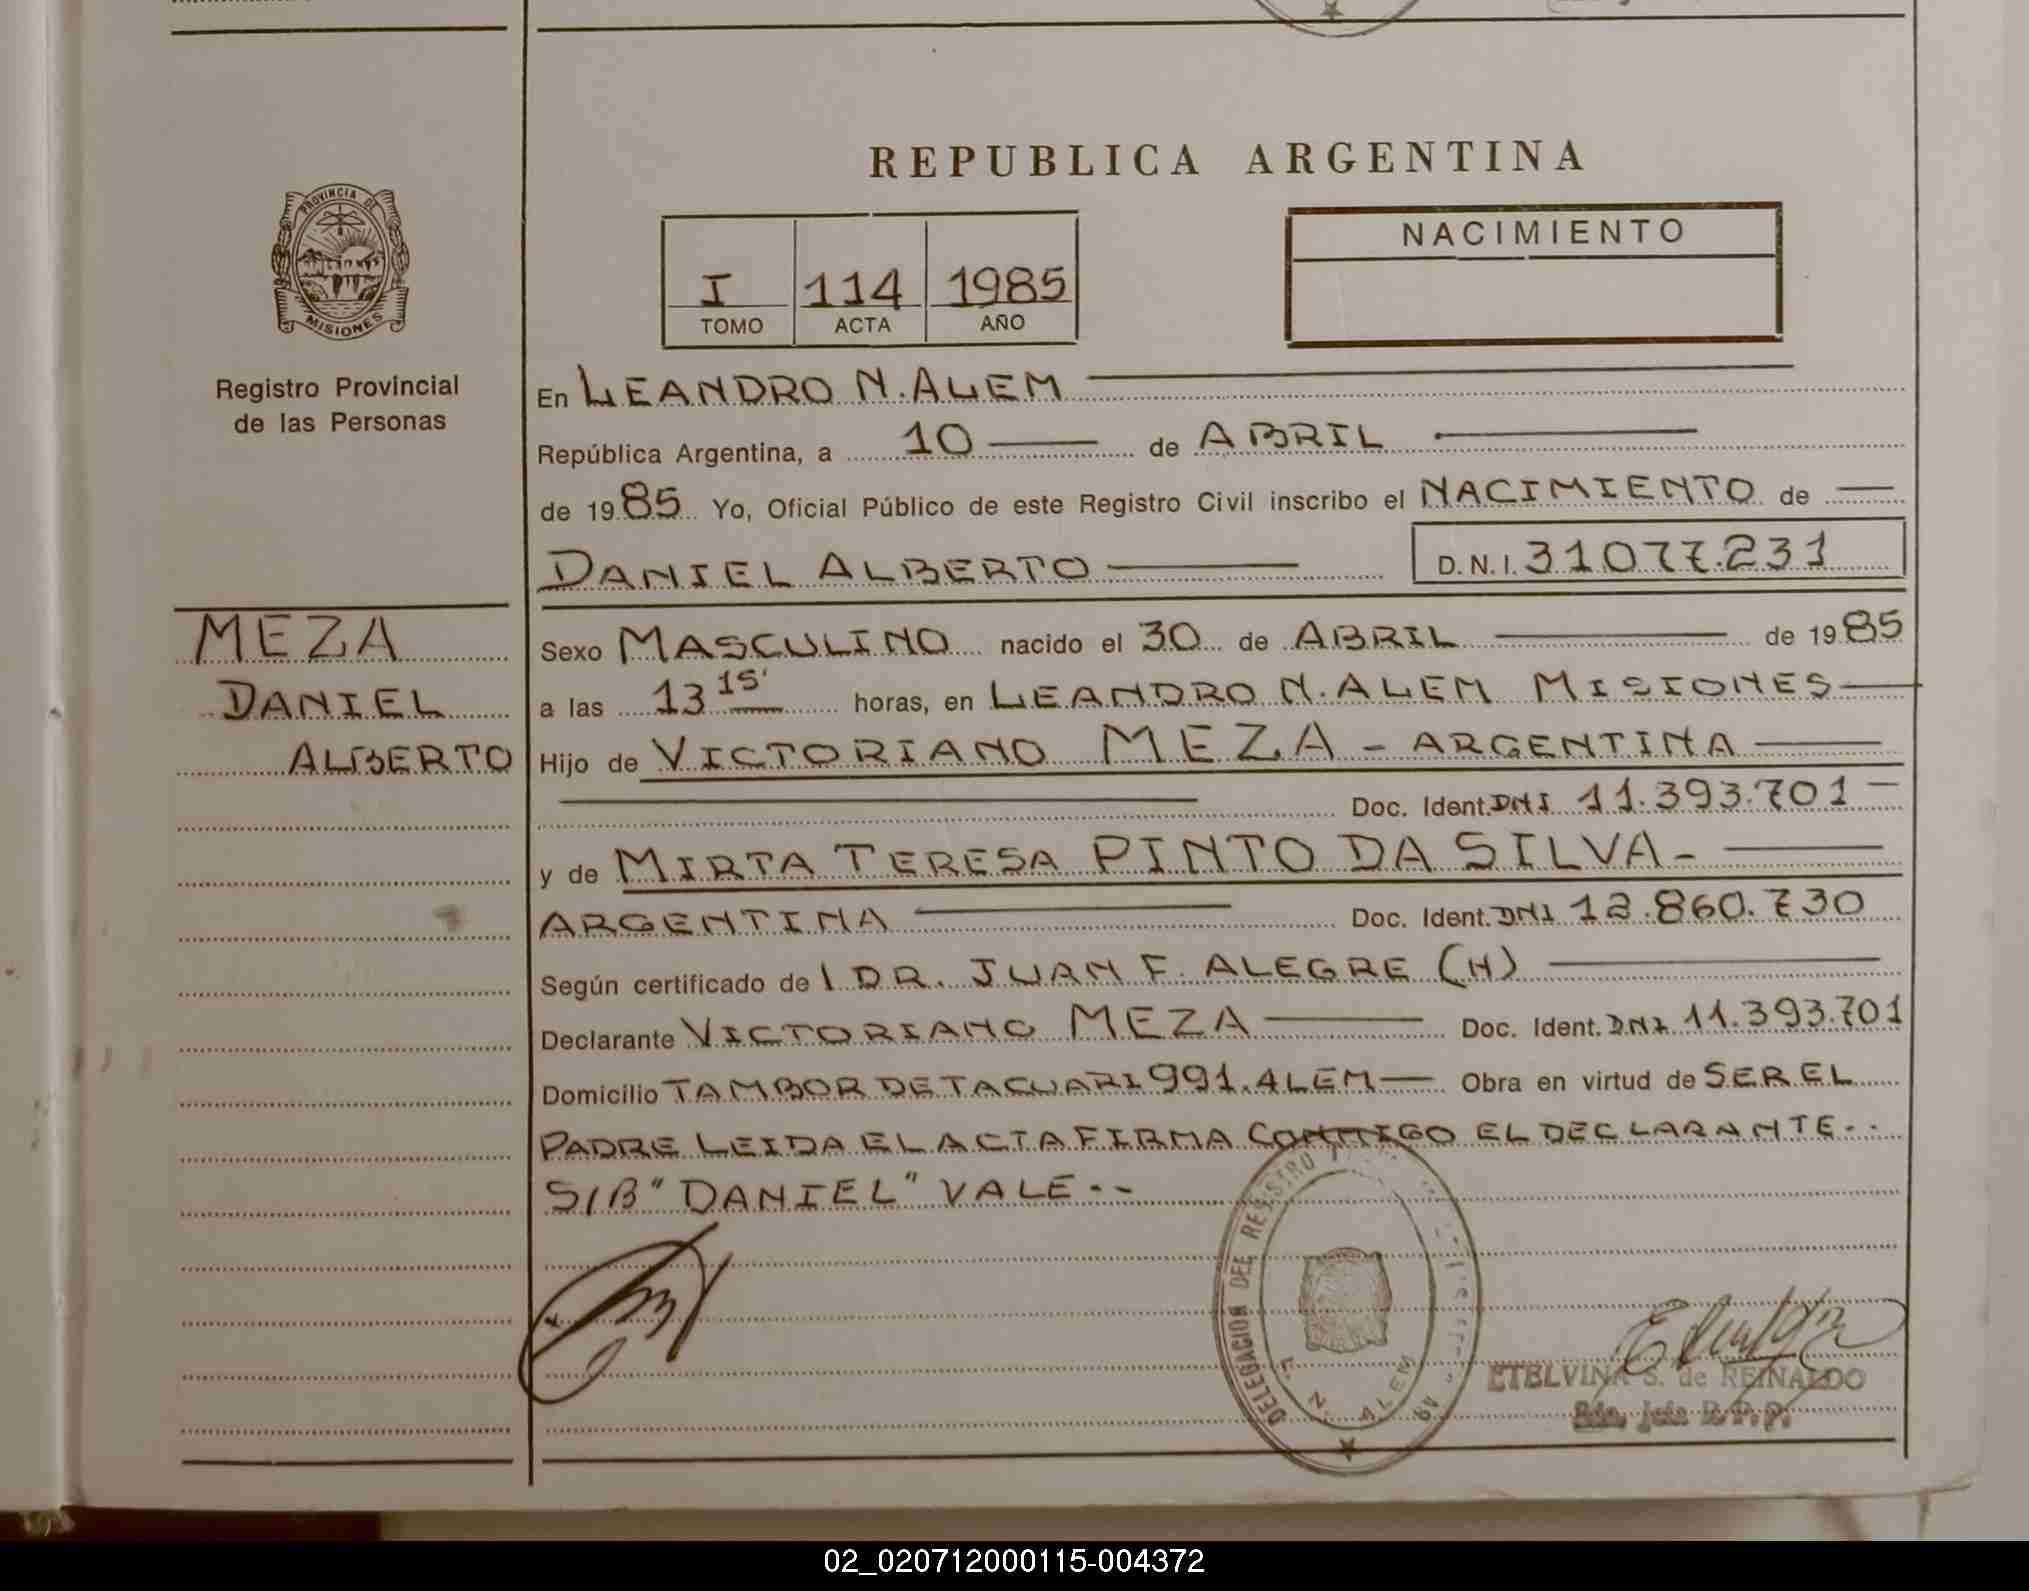 REPUBLICA ARGENTINA
PROVINCIA DE
MISIONES
Registro Provincial
de las Personas
I 114 1985
TOMO ACTA AÑO
NACIMIENTO
En LEANDRO N. ALEM
República Argentina, a 10 de ABRIL
de 1985 Yo, Oficial Público de este Registro Civil inscribo el NACIMIENTO de
DANIEL ALBERTO D.N.I. 31077.231
MEZA
DANIEL
ALBERTO
Sexo MASCULINO nacido el 30 de ABRIL de 1985
a las 13 15' horas, en LEANDRO N. ALEM MISIONES
Hijo de VICTORIANO MEZA - ARGENTINA
Doc. Ident. DNI 11.393.701
y de MIRTA TERESA PINTO DA SILVA -
ARGENTINA Doc. Ident. DNI 12.860.730
Según certificado de l DR. JUAN F. ALEGRE (H)
Declarante VICTORIANO MEZA Doc. Ident. DNI 11.393.701
Domicilio TAMBOR DE TACUARI 991. ALEM Obra en virtud de SER EL
PADRE LEIDA EL ACTA FIRMA CONMIGO EL DECLARANTE. -
S/B "DANIEL" VALE. -
DELEGACION DEL REGISTRO
L. N. ALEM
ETELVINA S. de REINALDO
02_020712000115-004372